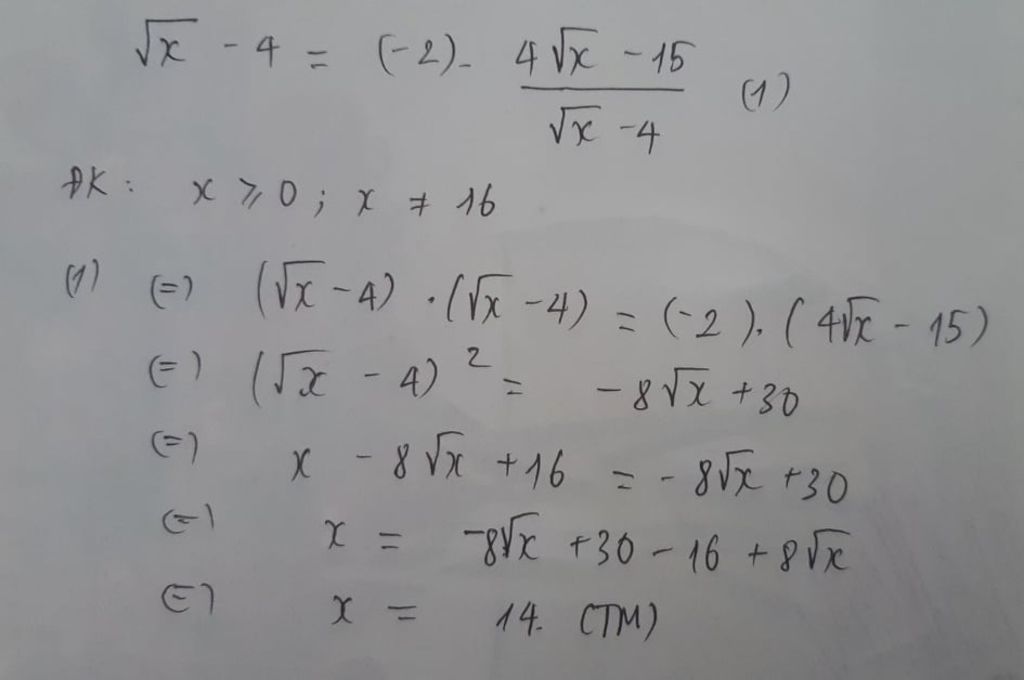 √x - 4 = (-2). (4√x - 15)/(√x - 4) (1)
ĐK: x ⩾ 0 ; x ≠ 16
(1) (=) (√x - 4) . (√x - 4) = (-2). (4√x - 15)
(=) (√x - 4)² = -8√x + 30
(=) x - 8√x + 16 = -8√x + 30
(=) x = -8√x + 30 - 16 + 8√x
(=) x = 14. (TM)